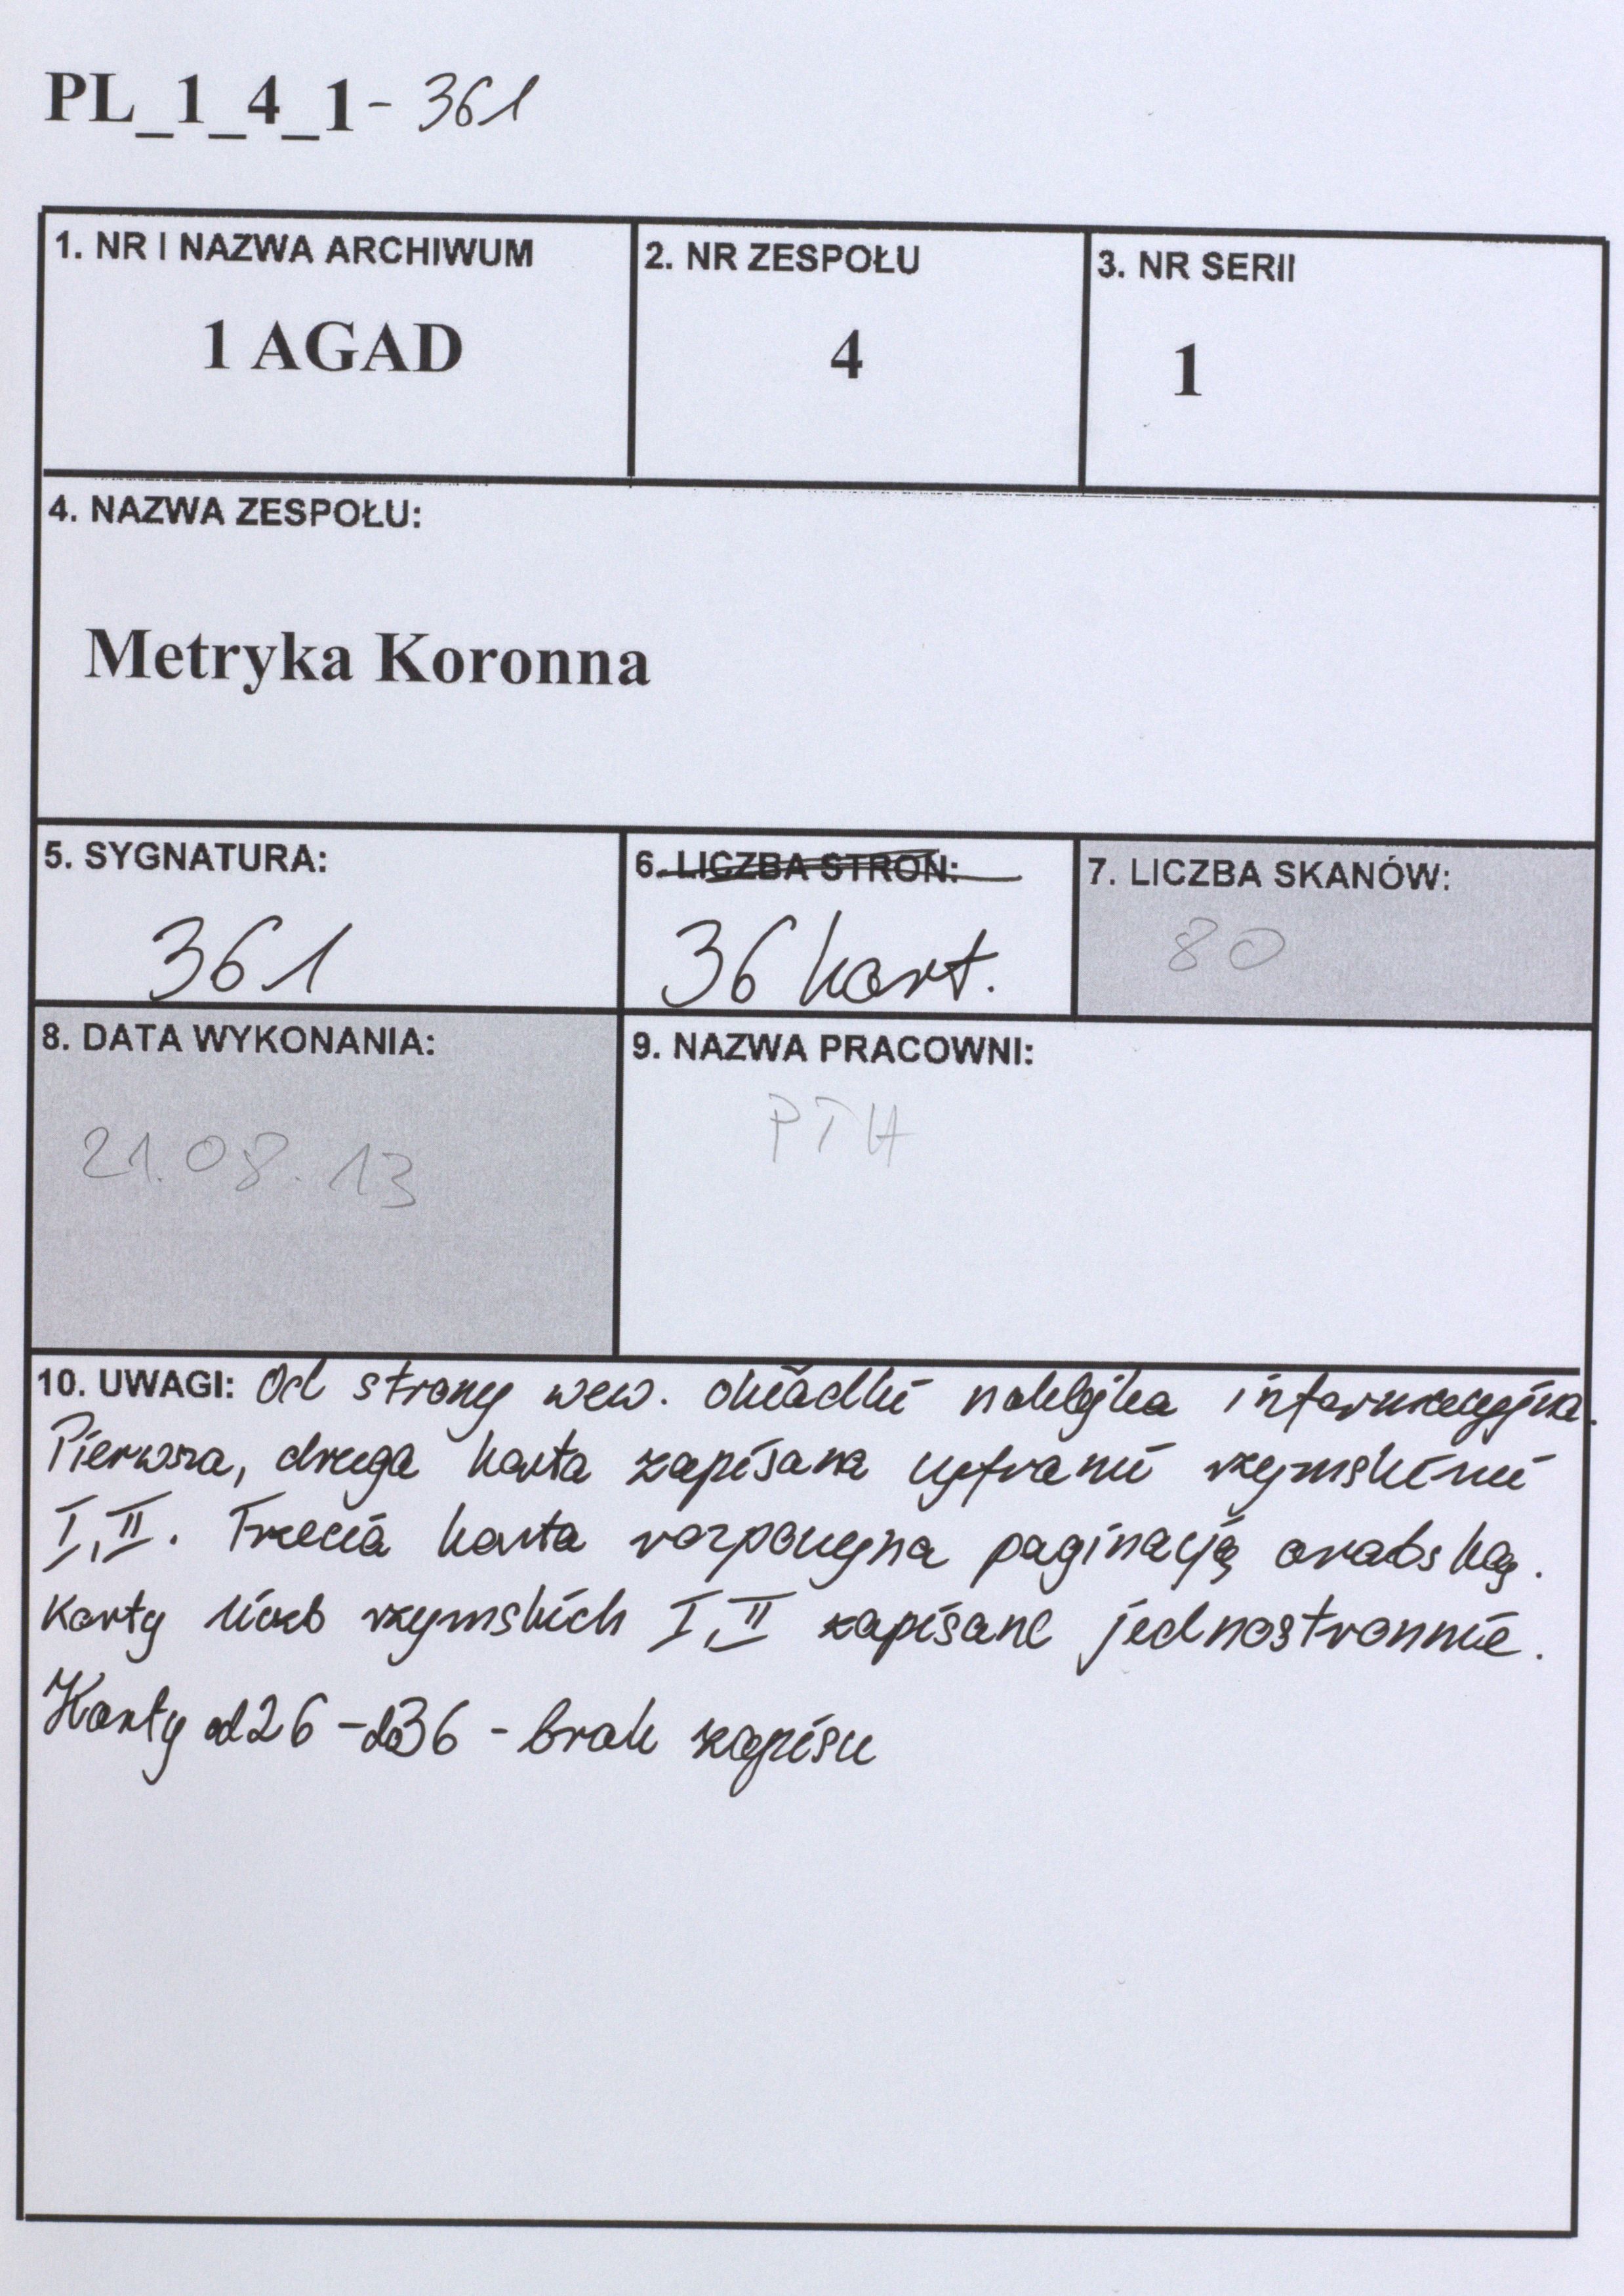 PL_1_4_1- 361
1. NR I NAZWA ARCHIWUM
1 AGAD
2. NR ZESPOŁU
4
3. NR SERII
1
4. NAZWA ZESPOŁU:
Metryka Koronna
5. SYGNATURA:
361
6. LICZBA STRON:
36 kart.
7. LICZBA SKANÓW:
80
8. DATA WYKONANIA:
21.08.13
9. NAZWA PRACOWNI:
PTH
10. UWAGI: Od strony wew. okładki naklejka informacyjna.
Pierwsza, druga karta zapisana cyframi rzymskimi
I, II. Trzecia karta rozpoczyna paginację arabską.
Karty liczb rzymskich I, II zapisane jednostronnie.
Karty od 26 - do 36 - brak zapisu